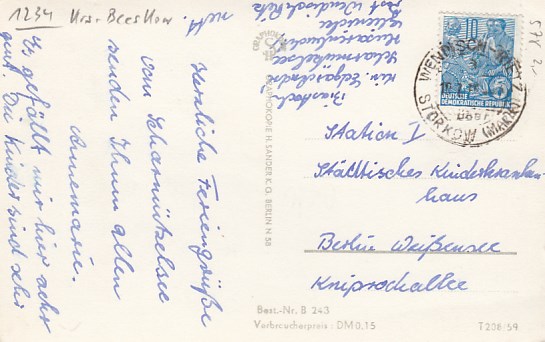 1234 Krs. Beeskow
Herzliche Feriengrüße
vom Scharmützelsee
senden Ihnen allen
Annemarie.
Es gefällt mir hier sehr
gut. Die Kinder sind sehr
nett.
Scharmützelsee
Post Wendisch Rietz
GRAPHOKONIE H. SANDER K. G. BERLIN N 58
DEUTSCHE
DEMOKRATISCHE REPUBLIK
5
WENDISCH-RIETZ
über
STORKOW (MARK)
Station I
Städtisches Kinderkranken-
haus
Berlin Weißensee
Kniprochallee
Best.-Nr. B 243
Verbraucherpreis: DM 0,15
T 208/59